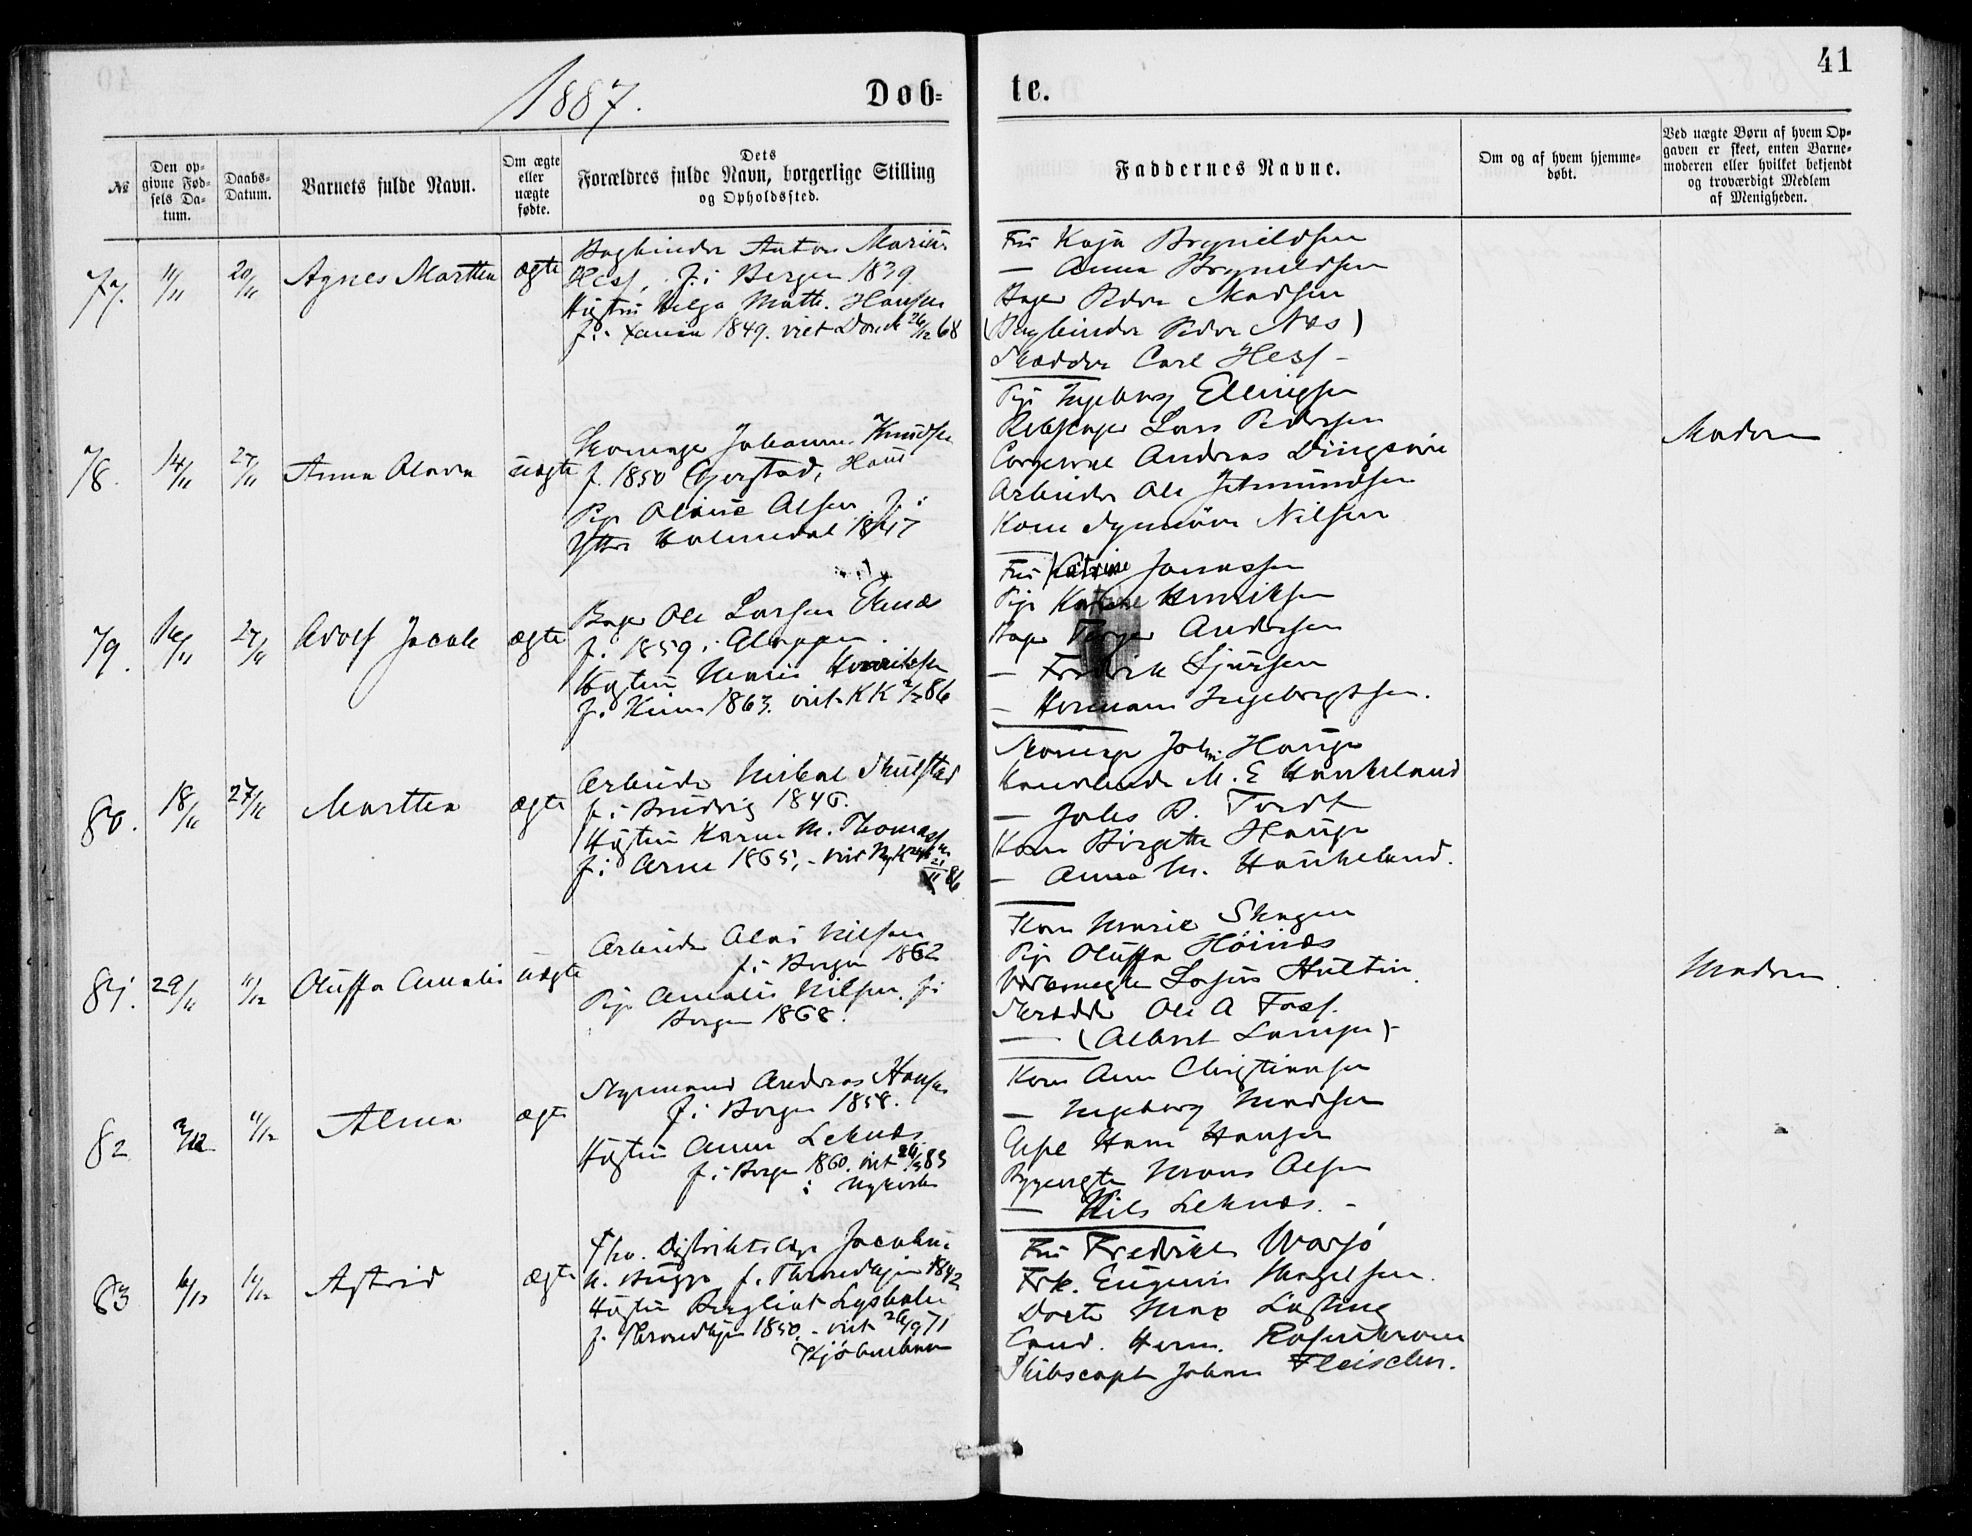 41
1887.
Døb-
te.
№
Den op-
givne Fød-
sels Da-
tum.
Daabs-
Datum.
Barnets fulde Navn.
Om ægte
eller
uægte
fødte.
Dets
Forældres fulde Navn, borgerlige Stilling
og Opholdssted.
Faddernes Navne.
Om og af hvem hjemme-
døbt.
Ved uægte Børn af hvem Op-
gaven er skeet, enten Barne-
moderen eller hvilket bekjendt
og troværdigt Medlem
af Menigheden.
77.
11/11
20/11
Agnes Marthea
ægte
Bogbinder Anton Marius
Hess, f. i Bergen 1839
Hustru Helga Math. Hansen
f. i 1849. viet Domk 26/12 68
Fru Kaja Brynildsen
— Anna Brynildsen
Bager Peder Madsen
(Bogbinder Peder Næs)
Skrædder Carl Hess -
78.
14/11
27/11
Anna Olava
uægte
Skomager Johannes Knudsen
f. 1850 Gjerstad,
Pige Oline Olsen f. i
Yttre Holmedal 1847
Pige Ingeborg Ellingsen
Rebslager Lars Pedersen
Andreas Dingsøir
Arbeider Ole
Kone Synnøve Nilsen
Moderen
79.
16/11
27/11
Adolf Jacob
ægte
Bager Ole Larsen Eknæs
f. i 1859 i Gloppen.
Hustru Marie Henriksen
f. i Kinn 1863. viet KK 86
Fru Katrine Jonassen
Pige Henriksen
Bager Andersen
— Fredrik Sjursen
— Herman Ingebrigtsen.
80.
18/11
27/11
Marthea
ægte
Arbeider Mikal Skulstad
f. i Bruvig 1846.
Hustru Karen M. Thomassen
f. i Arne 1865, - viet NyK 21/11 86
Skomager Joh. Hauge
Handlende M. E Haukeland
— Johs D. Tvedt
Kone Birgitte Hauge
— Anna M. Haukeland.
81.
29/11
11/12
Oluffa Amalie
uægte
Arbeider Olai Nilsen
f. i Bergen 1862
Pige Amalie Nilsen. f. i
Bergen 1868.
Kone Marie Skagen
Pige Oluffa Høinæs
Hultin
Skrædder Ole A Foss.
— (Albert Lampe) -
Moderen
82
2/12
11/12
Alma
ægte
Styrmand Andreas Hansen
f. i Bergen 1858.
Hustru Anna Leknæs
f. i Bergen 1860. viet 83
i Nykirken
Kone Anne Christiansen
— Ingeborg Madsen
Hans Hansen
Mons Olsen
— Nils Leknæs. -
83
11/12
Astrid
ægte
Fhv. Distriktslæge Jacob
Bugge f. Throndhjem 1842
Hustru Bergliot Lysholm
f. Throndhjem 1850. - viet 26/9 71
Kjøbenhavn
Fru Fredrikke
Frk. Eugenie Magelsen.
Docter Max
Cand. Herm. Rosenkrone
Skibscapt Johan Fleischer.